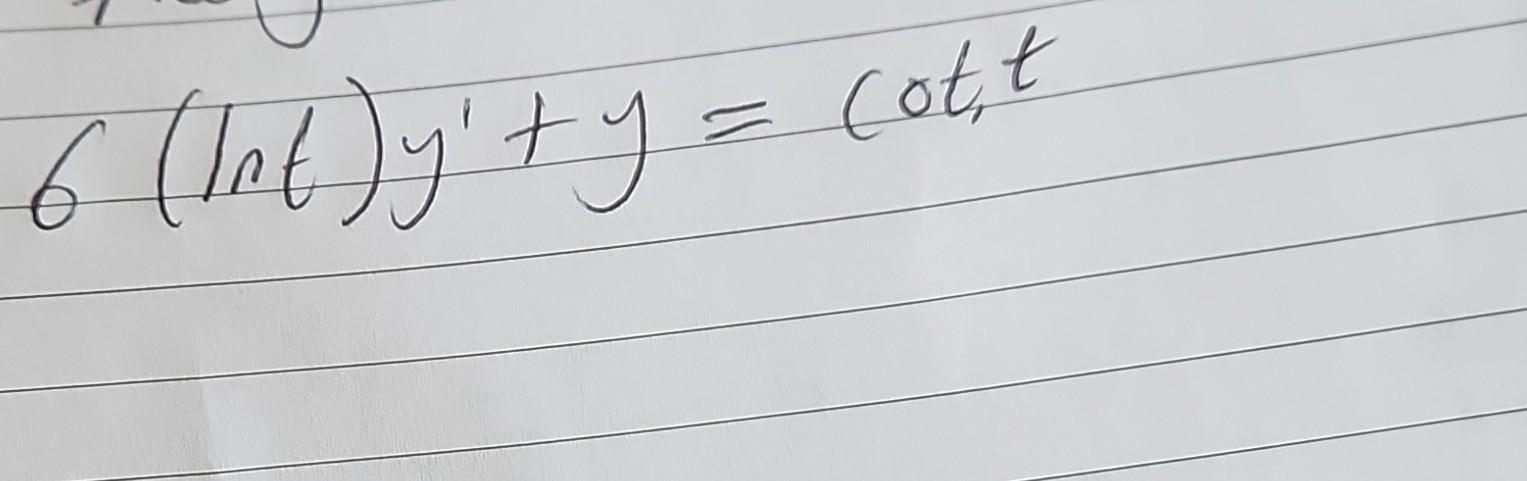 6 (lnt)y' + y = cot, t